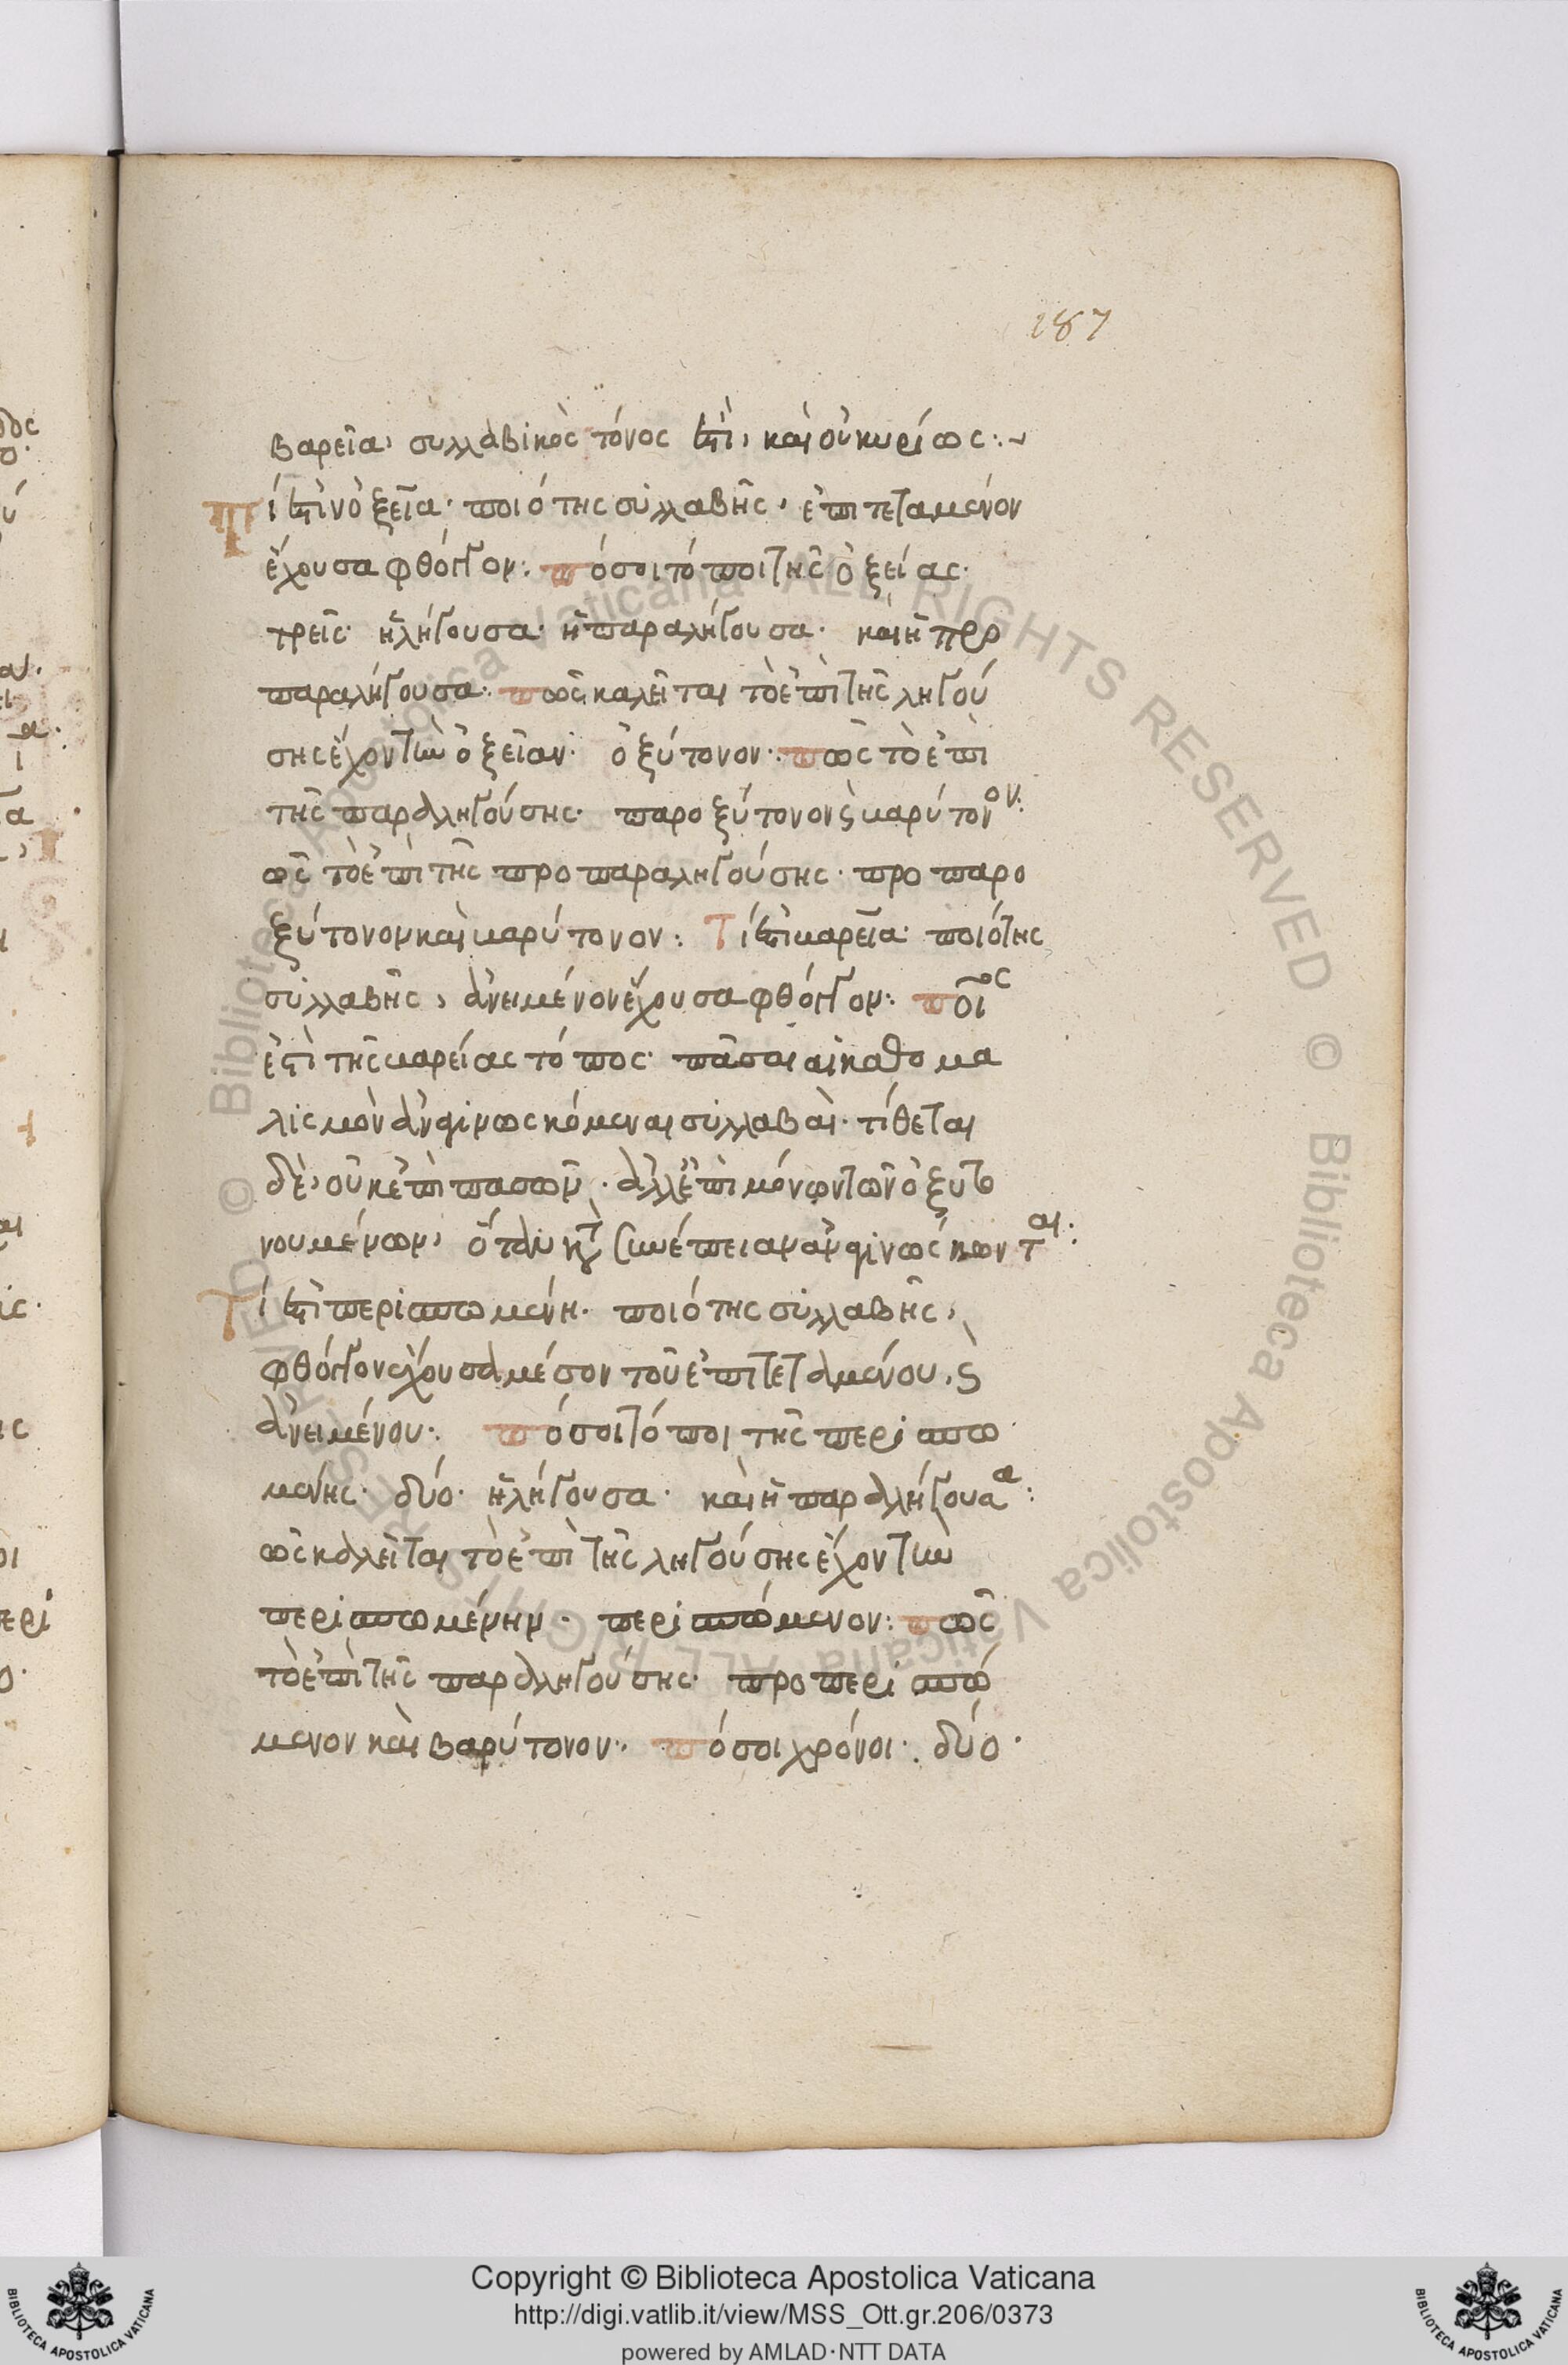 187
βαρεῖα, συλλαβικὸς τόνος ἐστὶ, καὶ οὐ κυρίως:~
Τί ἐστὶν ὀξεῖα· ποιότης συλλαβῆς, ἐπιτεταμένον
ἔχουσα φθόγγον: πόσοι τόποι τῆς ὀξείας·
τρεῖς· ἡ λήγουσα· ἡ παραλήγουσα· καὶ ἡ προ
παραλήγουσα: πῶς καλεῖται τὸ ἐπὶ τῆς ληγού
σης ἔχον τὴν ὀξεῖαν· ὀξύτονον: πῶς τὸ ἐπὶ
τῆς παραληγούσης· παροξύτονον ϛ βαρύτονον:
ῶς τὸ ἐπὶ τῆς προπαραληγούσης· προπαρο
ξύτονον καὶ βαρύτονον: Τί ἐστὶ βαρεῖα· ποιότης
συλλαβῆς, ἀνειμένον ἔχουσα φθόγγον: ποῖος
ἐστὶ τῆς βαρείας τόπος· πᾶσαι αἱ καθομα
λισμὸν ἀναγινωσκόμεναι συλλαβαί· τίθεται
δὲ, οὐκ ἐπὶ πασῶν· ἀλλ' ἐπὶ μόνων τῶν ὀξυτο
νουμένων, ὅταν κατὰ συνέπειαν ἀναγινώσκωνται:
Τί ἐστὶ περισπωμένη· ποιότης συλλαβῆς,
φθόγγον ἔχουσα μέσον τοῦ ἐπιτεταμένου, ϛ
ἀνειμένου: πόσοι τόποι τῆς περισπω
μένης· δύο· ἡ λήγουσα· καὶ ἡ παραλήγουσα:
ῶς καλεῖται τὸ ἐπὶ τῆς ληγούσης ἔχον τὴν
περισπωμένην· περισπώμενον: πῶς
τὸ ἐπὶ τῆς παραληγούσης· προπερισπώ
μενον καὶ βαρύτονον: πόσοι χρόνοι· δύο·
© Biblioteca Apostolica Vaticana ALL RIGHTS RESERVED © Biblioteca Apostolica Vaticana ALL RIGHTS RESERVED
BIBLIOTECA APOSTOLICA VATICANA
Copyright © Biblioteca Apostolica Vaticana
http://digi.vatlib.it/view/MSS_Ott.gr.206/0373
powered by AMLAD·NTT DATA
BIBLIOTECA APOSTOLICA VATICANA